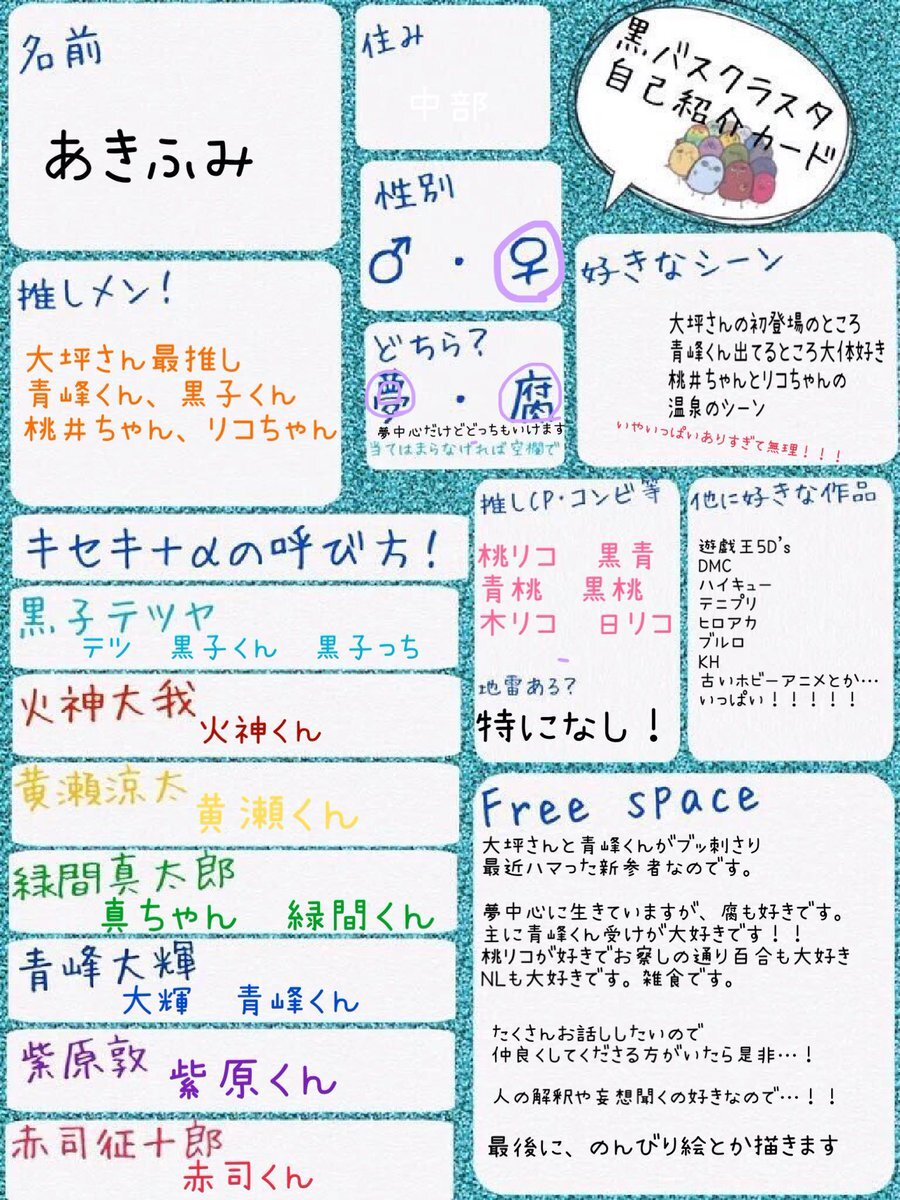 黒バスクラスタ
自己紹介カード
名前
あきふみ
住み
中部
性別
♂・♀
推しメン!
大坪さん最推し
青峰くん、黒子くん
桃井ちゃん、リコちゃん
どちら?
夢・腐
夢中心だけどどっちもいけます
当てはまらなければ空欄で
好きなシーン
大坪さんの初登場のところ
青峰くん出てるところ大体好き
桃井ちゃんとリコちゃんの
温泉のシーン
いやいっぱいありすぎて無理!!!
キセキ+αの呼び方!
黒子テツヤ
テツ 黒子くん 黒子っち
火神大我
火神くん
黄瀬涼太
黄瀬くん
緑間真太郎
真ちゃん 緑間くん
青峰大輝
大輝 青峰くん
紫原敦
紫原くん
赤司征十郎
赤司くん
推しCP・コンビ等
桃リコ 黒青
青桃 黒桃
木リコ 日リコ
地雷ある?
特になし!
他に好きな作品
遊戯王5D's
DMC
ハイキュー
テニプリ
ヒロアカ
ブルロ
KH
古いホビーアニメとか…
いっぱい!!!!!
Free space
大坪さんと青峰くんがブッ刺さり
最近ハマった新参者なのです。
夢中心に生きていますが、腐も好きです。
主に青峰くん受けが大好きです!!
桃リコが好きでお察しの通り百合も大好き
NLも大好きです。雑食です。
たくさんお話ししたいので
仲良くしてくださる方がいたら是非…!
人の解釈や妄想聞くの好きなので…!!
最後に、のんびり絵とか描きます